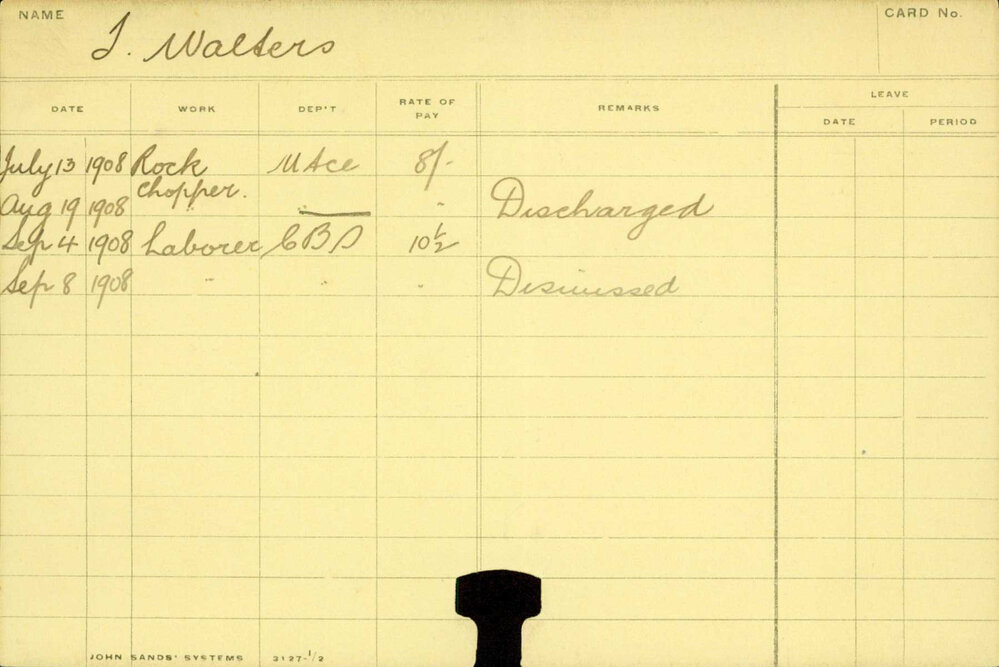 NAME
CARD No.
J. Walters
DATE WORK DEP'T RATE OF PAY REMARKS LEAVE
DATE PERIOD
July 13 1908 Rock chopper. M Ace 8/-
Aug 19 1908 " " " Discharged
Sep 4 1908 Laborer CBD 10½
Sep 8 1908 " " " Dismissed
JOHN SANDS' SYSTEMS 3127-1/2